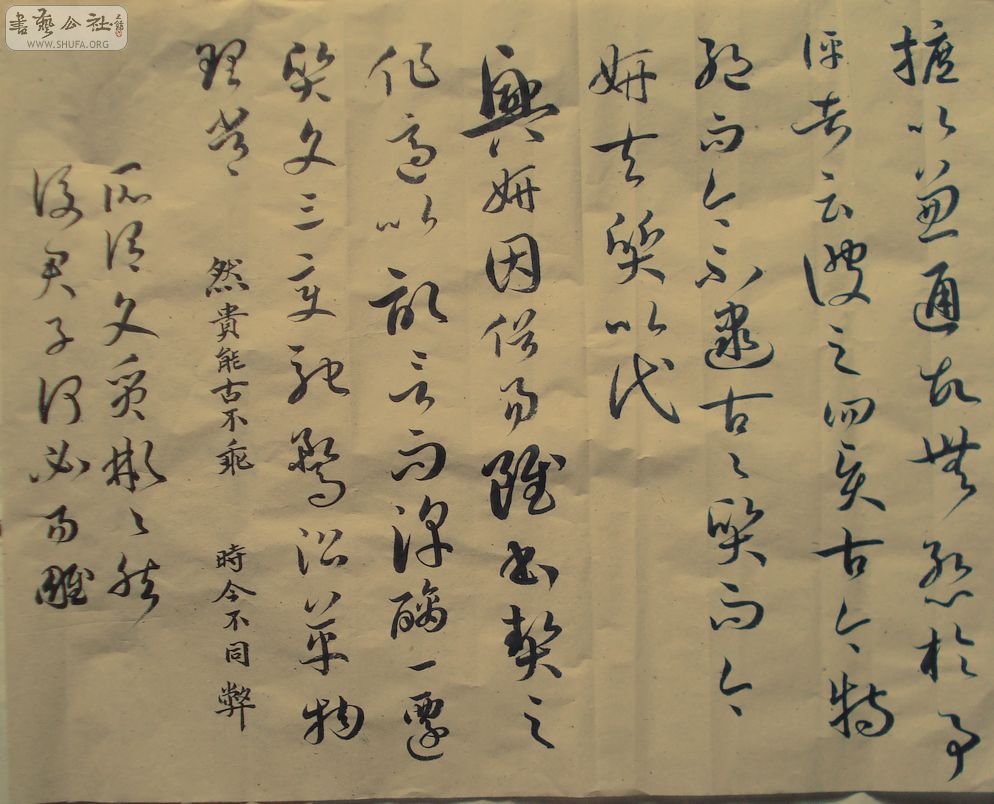 摭以兼通故無慙於事
評者云彼之四賢古今特
絕而今不逮古々質而今
妍夫質以代
興妍因俗易雖書契之
作適以記言而淳醨一遷
質文三變馳騖沿革物
理常 然貴能古不乖 時今不同弊
所謂文質彬々然
後君子何必易雕
書藝公社
WWW.SHUFA.ORG